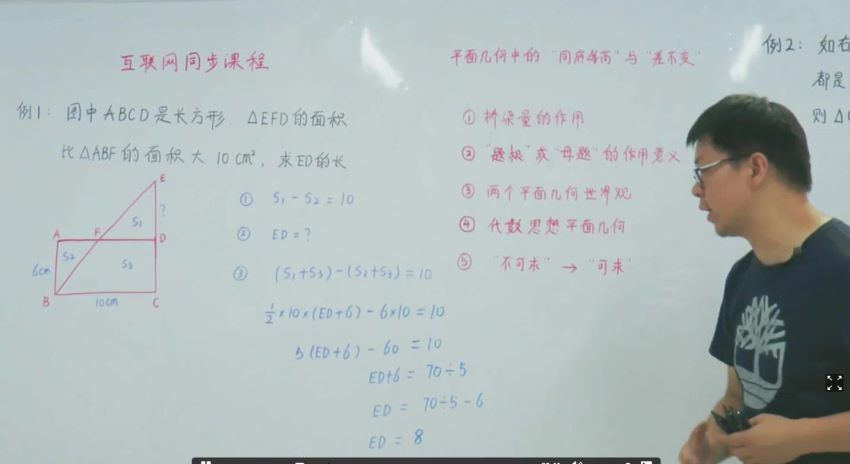 互联网同步课程
平面几何中的"同底等高"与"差不变"
例1: 图中ABCD是长方形. △EFD的面积
比△ABF的面积大 10 cm², 求ED的长
E
S₁
?
A
F
D
S₂
S₃
6cm
B
10cm
C
① S₁ - S₂ = 10
② ED = ?
③ (S₁+S₃)-(S₂+S₃) = 10
½×10×(ED+6) - 6×10 = 10
5(ED+6) - 60 = 10
ED+6 = 70÷5
ED = 70÷5 - 6
ED = 8
① 桥梁量的作用
② "题根"或"母题"的作用意义
③ 两个平面几何世界观
④ 代数思想平面几何
⑤ "不可求" → "可求"
例2: 如右
都是
则△